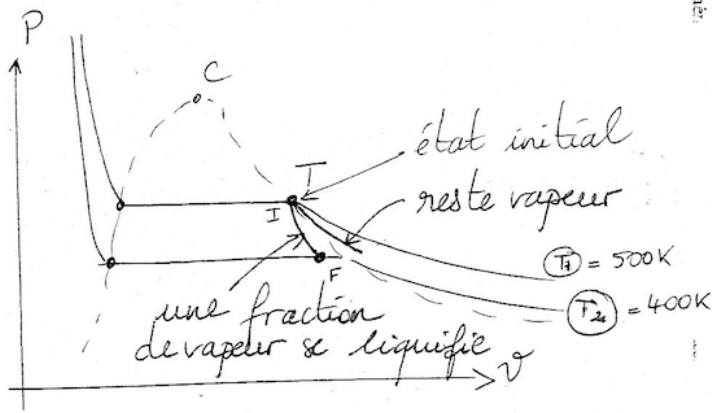 P
C
état initial
I
reste vapeur
I
T₁ = 500K
F
T₂ = 400K
une fraction
de vapeur se liquifie
v